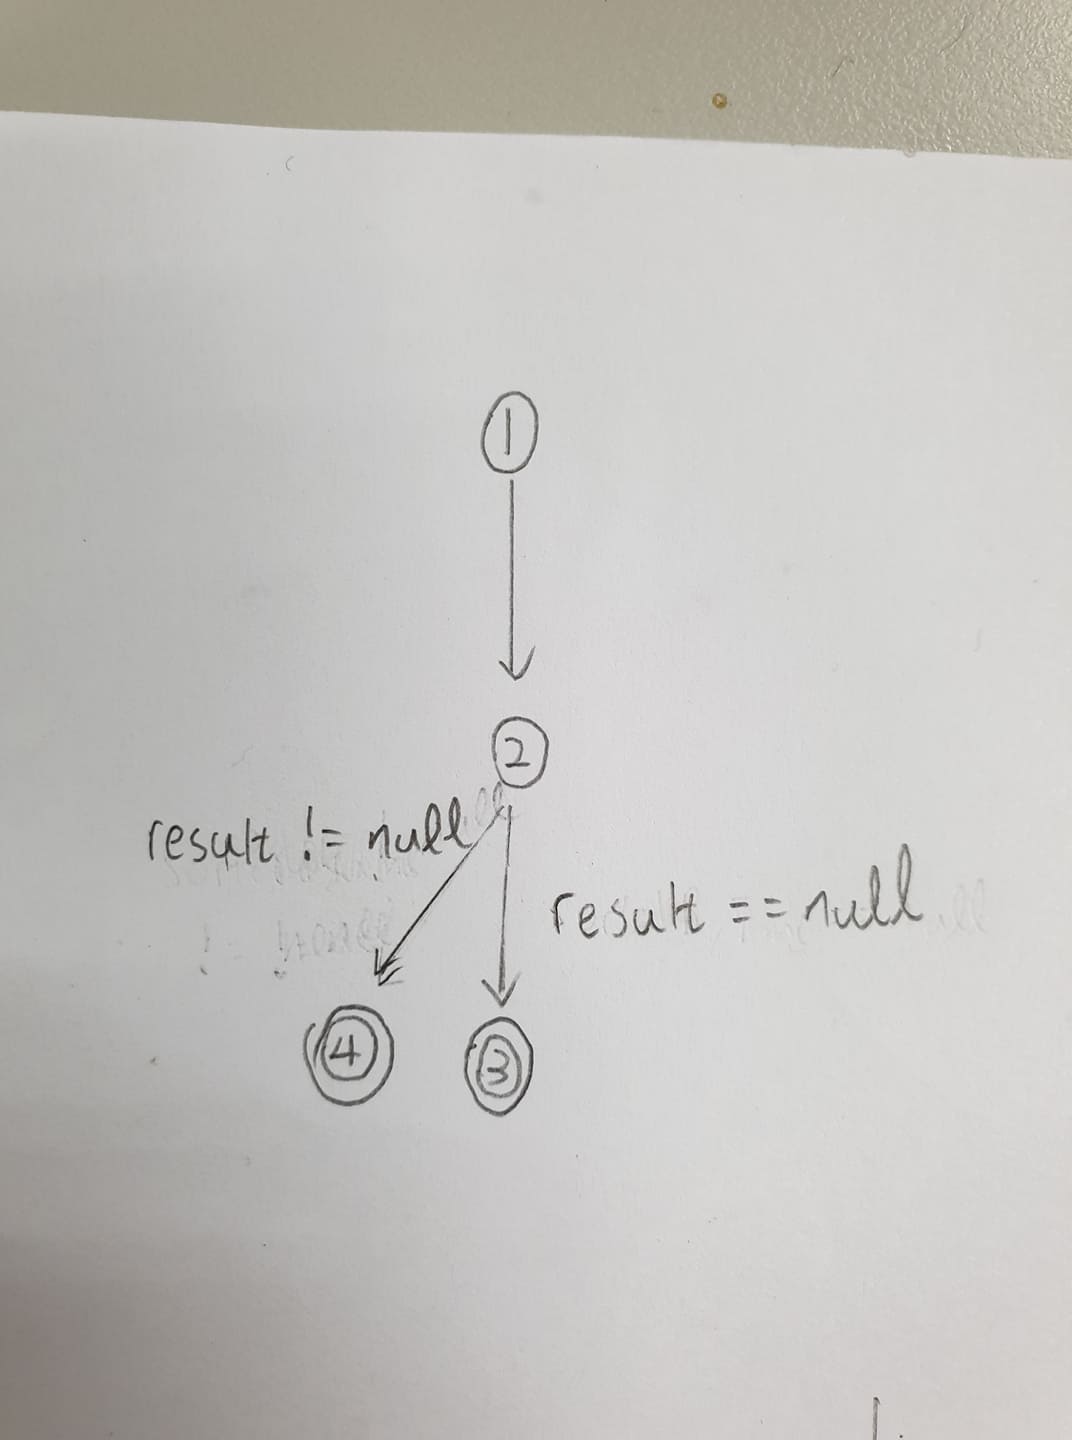 1
2
result != null
result == null
4 3